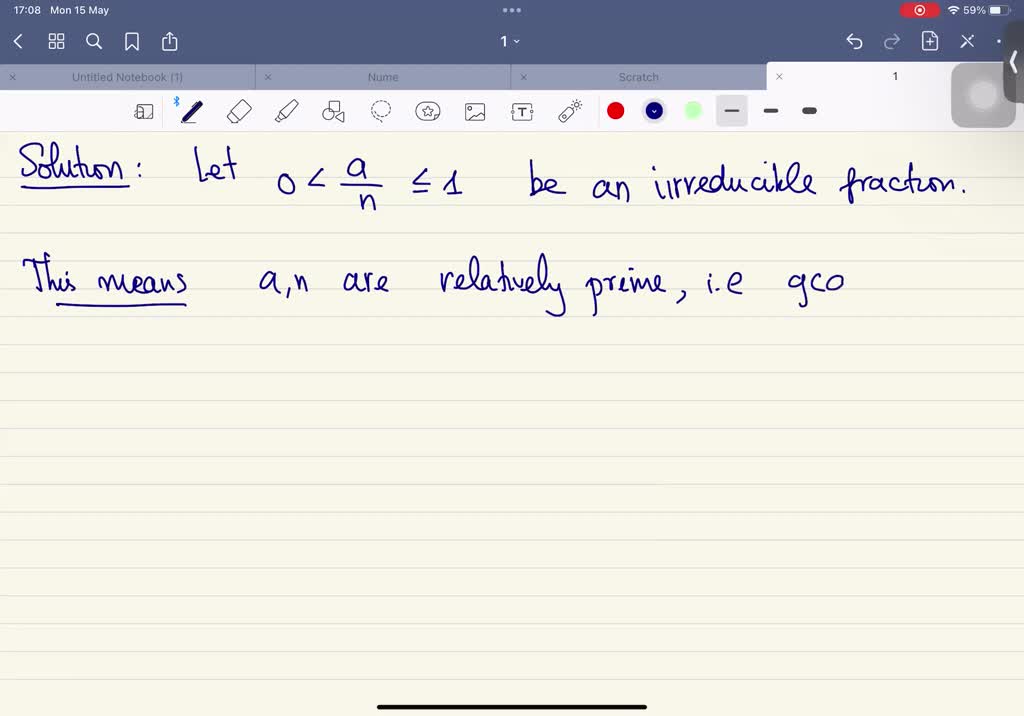 17:08 Mon 15 May
59%
1
Untitled Notebook (1)
Nume
Scratch
1
Solution: Let 0 < a/n ≤ 1 be an iirreducible fraction.
This means a,n are relatively prime, i.e gco